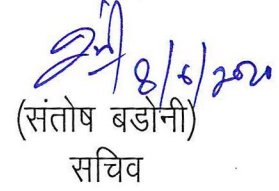 8/6/2020
(संतोष बडोनी)
सचिव